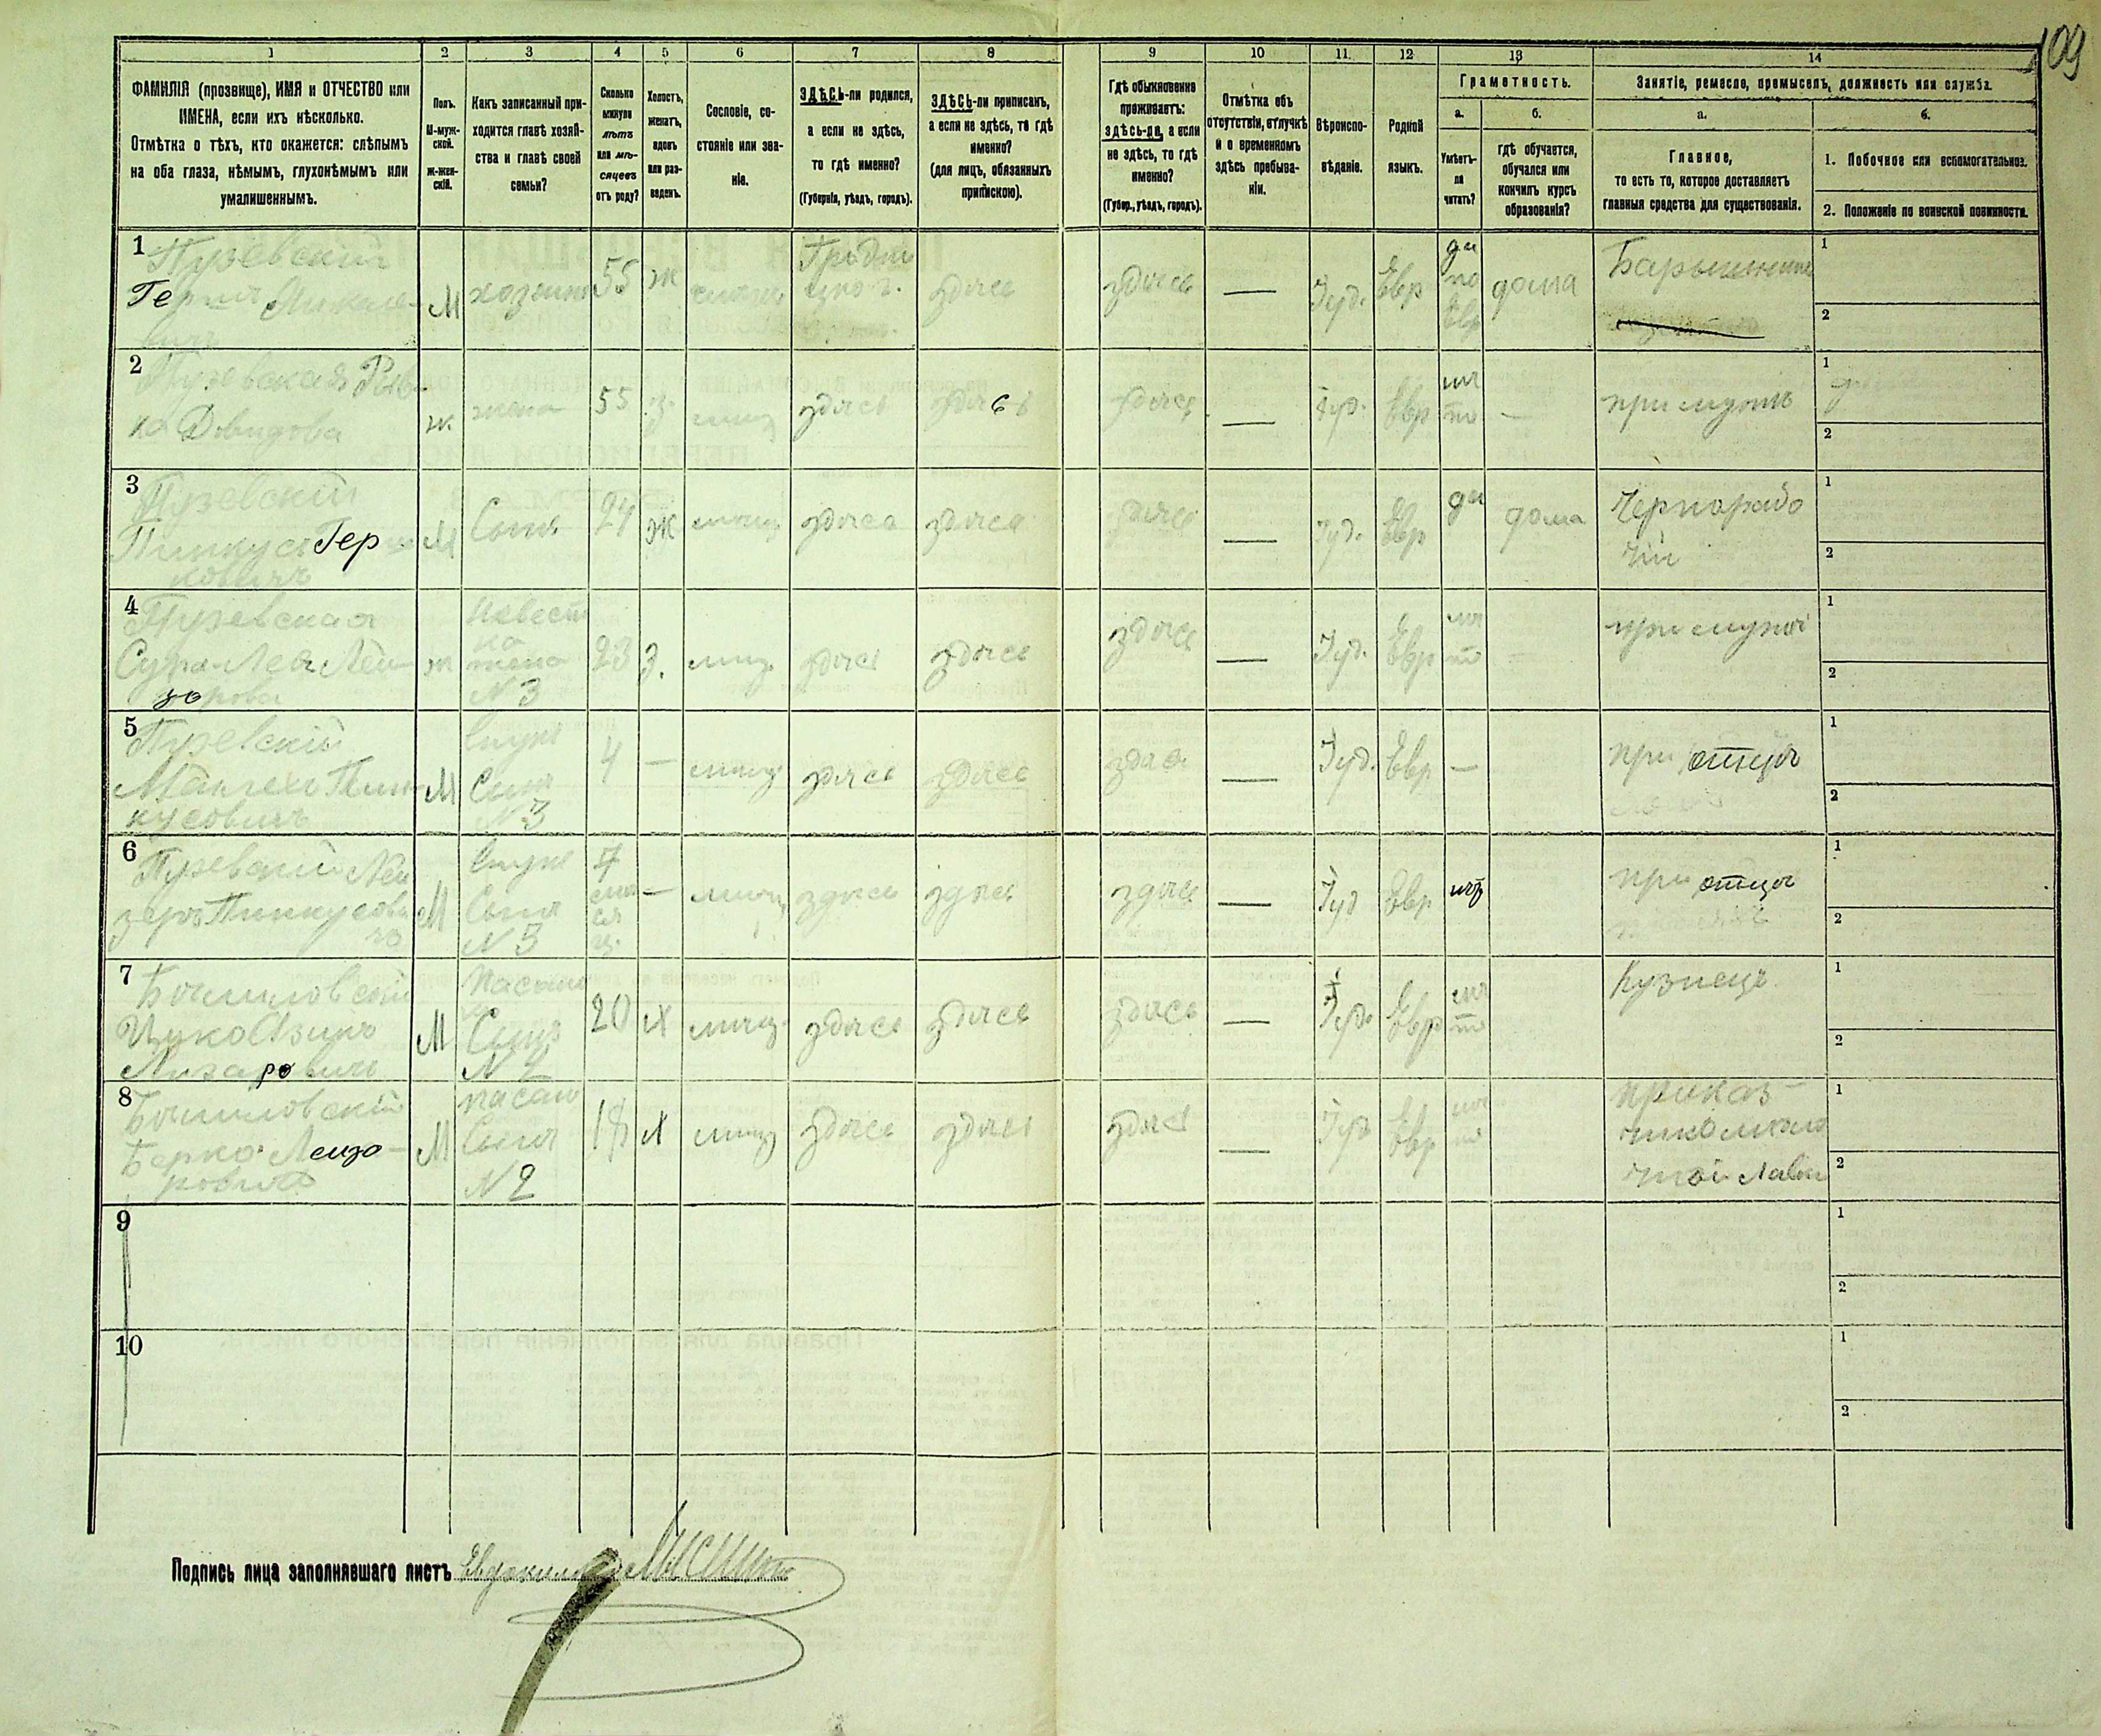 109
1 2 3 4 5 6 7 8 9 10 11. 12 13 14
ФАМИЛІЯ (прозвище), ИМЯ и ОТЧЕСТВО или
ИМЕНА, если ихъ нѣсколько.
Отмѣтка о тѣхъ, кто окажется: слѣпымъ
на оба глаза, нѣмымъ, глухонѣмымъ или
умалишеннымъ.
Полъ.
М-муж-
ской.
ж-жен-
скій.
Какъ записанный при-
ходится главѣ хозяй-
ства и главѣ своей
семьи?
Сколько
минуло
лѣтъ
или мѣ-
сяцевъ
отъ роду?
Холостъ,
женатъ,
вдовъ
или раз-
веденъ.
Сословіе, со-
стояніе или зва-
ніе.
ЗДѢСЬ-ли родился,
а если не здѣсь,
то гдѣ именно?
(Губернія, уѣздъ, городъ).
ЗДѢСЬ-ли приписанъ,
а если не здѣсь, то гдѣ
именно?
(для лицъ, обязанныхъ
припискою).
Гдѣ обыкновенно
проживаетъ:
здѣсь-ли, а если
не здѣсь, то гдѣ
именно?
(Губер., уѣздъ, городъ).
Отмѣтка объ
отсутствіи, отлучкѣ
и о временномъ
здѣсь пребыва-
ніи.
Вѣроиспо-
вѣданіе.
Родной
языкъ.
Грамотность.
а.
Умѣетъ-
ли
читать?
б.
гдѣ обучается,
обучался или
кончилъ курсъ
образованія?
Занятіе, ремесло, промыселъ, должность или служба.
а.
Главное,
то есть то, которое доставляетъ
главныя средства для существованія.
б.
1. Побочное или вспомогательное.
2. Положеніе по воинской повинности.
1
Пузевскій
М
хозяинъ
55
ж
здѣсь
здѣсь
—
Іуд.
Евр
да
по
Евр
дома
1
2
2
Пузевская Рив-
ка Давидова
ж
жена
55
з.
мѣщ
здѣсь
здѣсь
здѣсь
—
Іуд.
Евр
нѣ
тъ
—
при мужѣ
1
2
3
Пузевскій
Пинкусъ Гер
ковичъ
М
Сынъ
24
ж
мѣщ
здѣсь
здѣсь
здѣсь
—
Іуд.
Евр
да
дома
Чернорабо
чій
1
2
4
Пузевская
Сура-Лея Лей
зорова
ж
Невест
ка
жена
N 3
23
з.
мѣщ.
здѣсь
здѣсь
здѣсь
—
Іуд.
Евр
нѣ
тъ
при мужѣ
1
2
5
Пузевскій
Пин
кусовичъ
М
Внукъ
Сынъ
N 3
4
—
мѣщ.
здѣсь
здѣсь
здѣсь
—
Іуд.
Евр
—
при отцѣ
1
2
6
Пузевскій Лей
зеръ Пинкусови
чъ
М
Внукъ
Сынъ
N 3
—
мѣщ.
здѣсь
здѣсь
здѣсь
—
Іуд
Евр
нѣтъ
при отцѣ
1
2
7
М
Сынъ
20
х
мѣщ.
здѣсь
здѣсь
здѣсь
—
Іуд.
Евр
нѣ
тъ
Кузнецъ
1
2
8
Берко Лейзо-
ровичъ
М
Сынъ
N 2
18
х
мѣщ
здѣсь
здѣсь
здѣсь
—
Іуд
Евр
нѣ
тъ
приказ-
1
2
9
1
2
10
1
2
Подпись лица заполнявшаго листъ